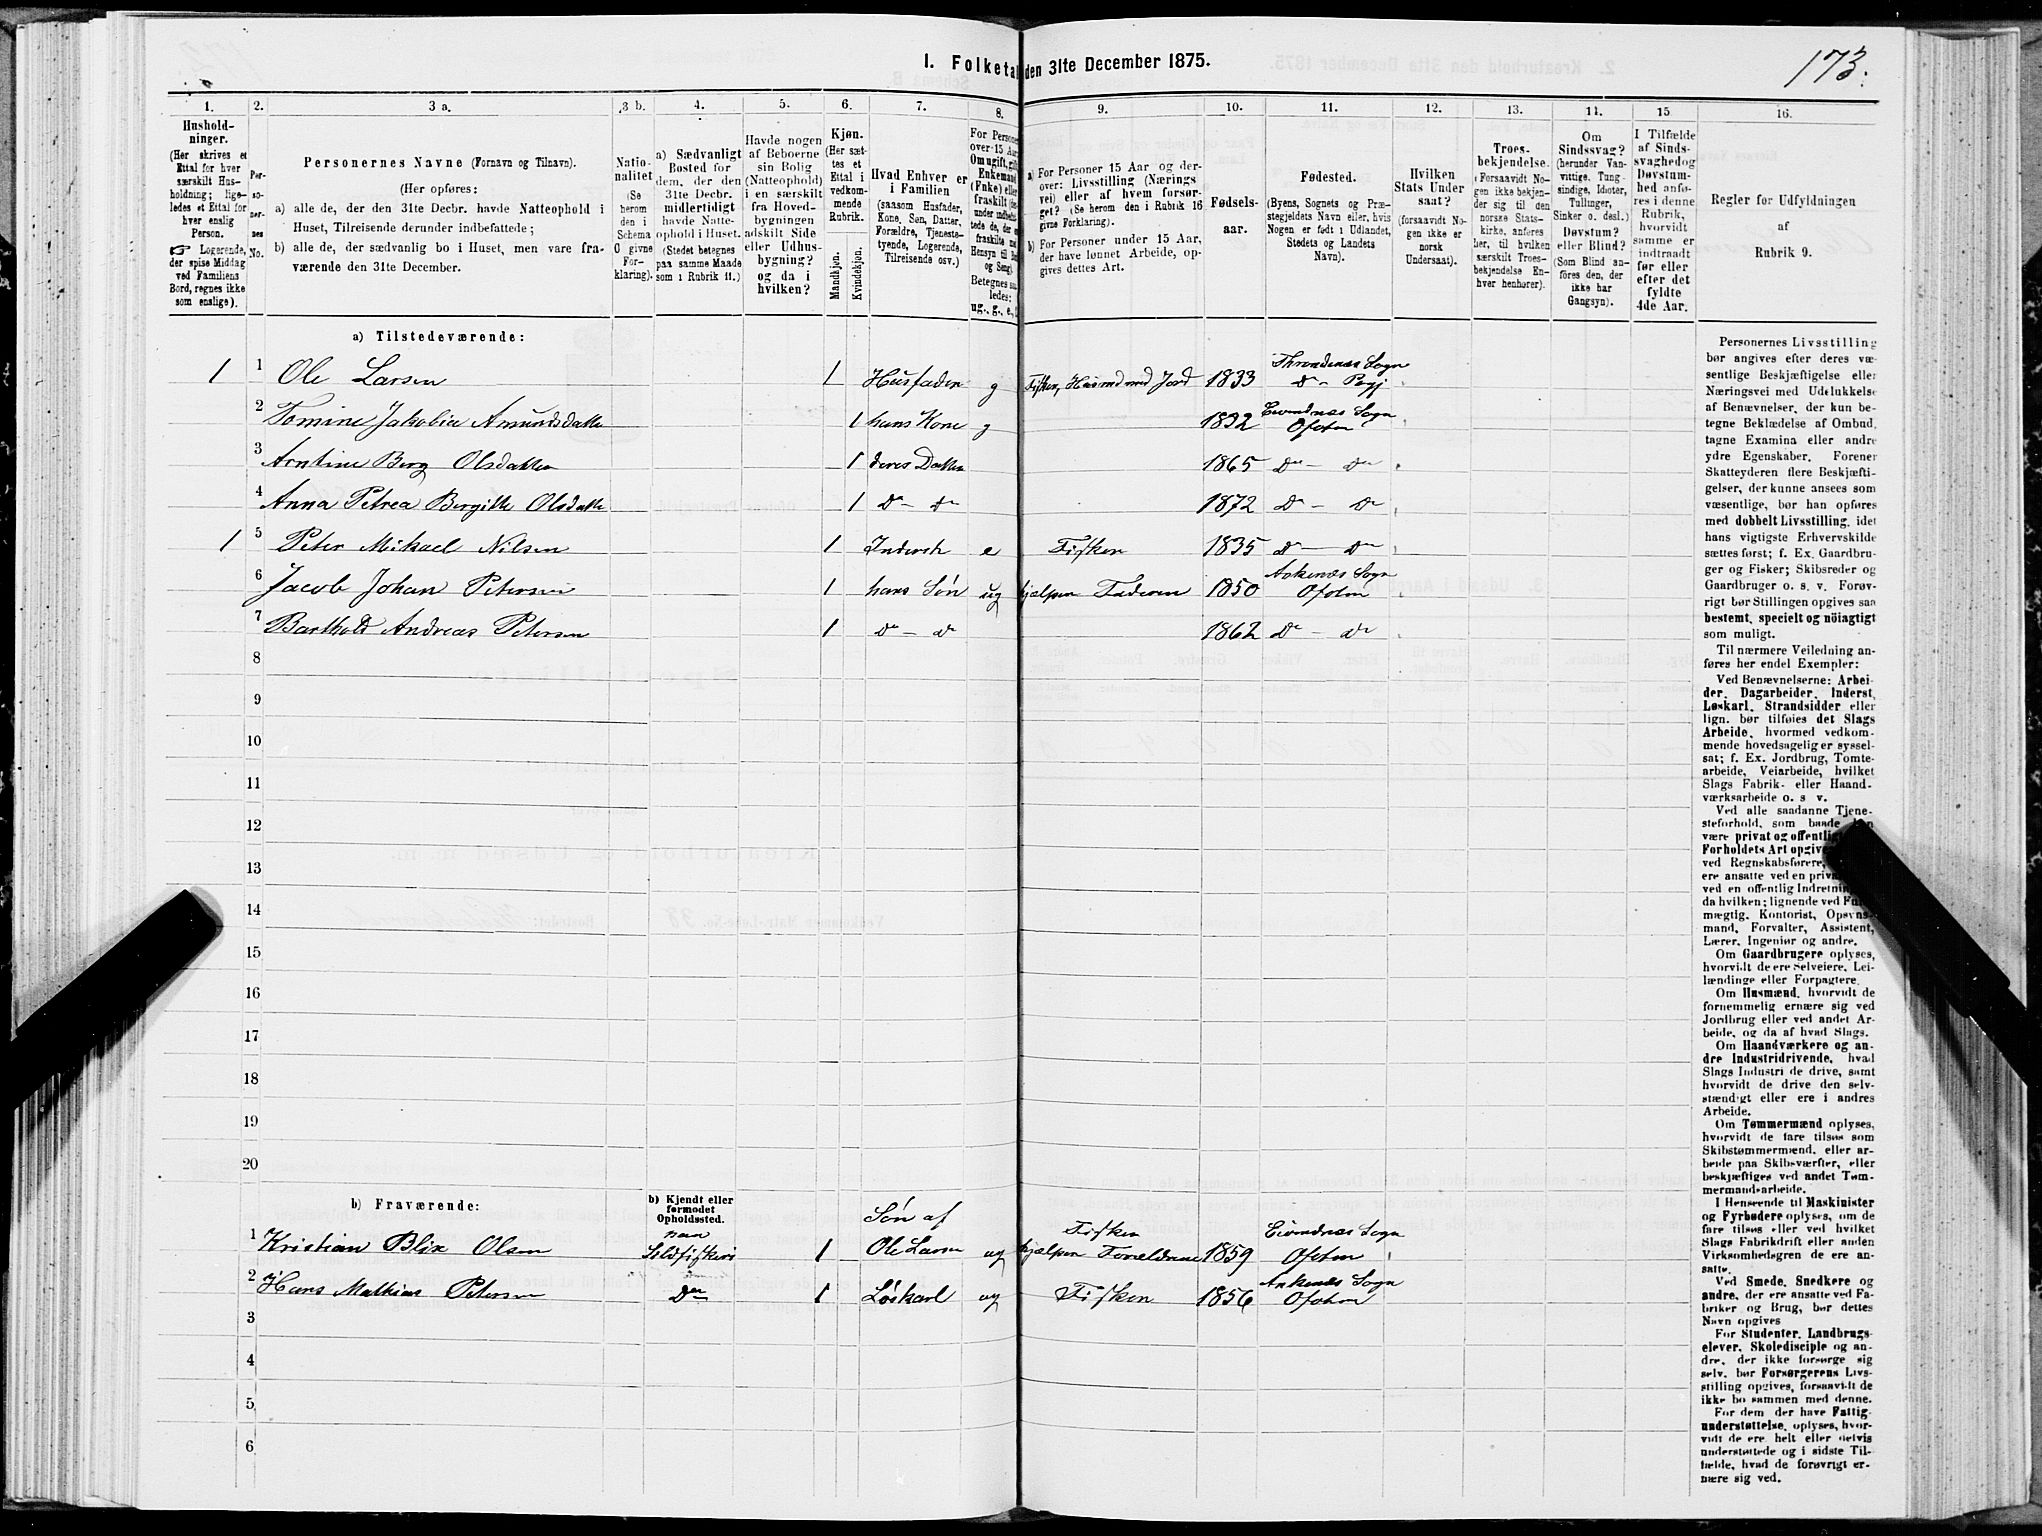 1. Folketal den 31te December 1875.
173.
1.
2.
3 a.
3 b.
4.
5.
6.
7.
8.
9.
10.
11.
12.
13.
14.
15
16.
Hushold-
ninger.
(Her skrives et
Ettal for hver
særskilt Hus-
holdning; lige-
ledes et Ettal for
hver enslig
Person.
Logerende,
der spise Middag
ved Familiens
Bord, regnes ikke
som enslige).
Per-
so-
ner-
nes
No.
Personernes Navne (Fornavn og Tilnavn).
(Her opføres:
a) alle de, der den 31te Decbr. havde Natteophold i
Huset, Tilreisende derunder indbefattede;
b) alle de, der sædvanlig bo i Huset, men vare fra-
værende den 31te December.
Natio-
nalitet
(Se
herom
den i
Schema
O givne
For-
klaring).
a) Sædvanligt
Bosted for
dem, der den
31te Decbr.
midlertidigt
havde Natte-
ophold i Huset.
(Stedet betegnes
paa samme Maade
som i Rubrik 11.)
Havde nogen
af Beboerne
sin Bolig
(Natteophold)
i en særskilt
fra Hoved-
bygningen
adskilt Side
eller Udhus-
bygning?
og da i
hvilken?
Kjøn.
(Her sæt-
tes et
Ettal i
vedkom-
mende
Rubrik.
Mandkjøn.
Kvindekjøn.
Hvad Enhver er
i Familien
(saasom Husfader,
Kone, Søn, Datter,
Forældre, Tjeneste-
tyende, Logerende,
Tilreisende osv.)
For Personer
over 15 Aar:
Om ugift, gift,
Enkemand
(Enke) eller
fraskilt
Betegnes saa-
ledes:
ug., g., e.,
a) For Personer 15 Aar og der-
over: Livsstilling (Nærings-
vei) eller af hvem forsør-
get? (Se herom den i Rubrik 16
givne Forklaring).
b) For Personer under 15 Aar,
der have lønnet Arbeide, op-
gives dettes Art.
Fødsels-
aar.
Fødested.
(Byens, Sognets og Præ-
stegjeldets Navn eller, hvis
Nogen er født i Udlandet,
Stedets og Landets
Navn).
Hvilken
Stats Under-
saat?
(forsaavidt No-
gen ikke er
norsk
Undersaat).
Troes-
bekjendelse.
(Forsaavidt No-
gen ikke bekjen-
der sig til den
norske Stats-
kirke, anføres
her, til hvilken
særskilt Troes-
bekjendelse En-
hver henhører).
Om
Sindssvag?
(herunder Van-
vittige, Tung-
sindige, Idioter,
Tullinger,
Sinker o. desl.)
Døvstum?
eller Blind?
(Som Blind an-
føres den, der
ikke har
Gangsyn).
I Tilfælde
af Sinds-
svaghed og
Døvstum-
hed anfø-
res i denne
Rubrik,
hvorvidt
samme er
indtraadt
før eller
efter det
fyldte
4de Aar.
Regler for Udfyldningen
af
Rubrik 9.
a) Tilstedeværende:
1 1 Ole Larsen 1 Husfader g Fisker, Husmd med Jord 1833 Throndenæs Sogn
Do - Pgj
2 Tomine Jakobia Amundsdatte 1 hans Kone g 1832 Evendnæs Sogn
Ofoten
3 Arntine Berg Olsdatter 1 deres Datter 1865 Do - Do
4 Anna Petrea Bergitte Olsdatte 1 Do - Do 1872 Do - Do
1 5 Peter Mikael Nilsen 1 Inderst e Fisker 1835 Do - Do
6 Jacob Johan Petersen 1 hans Søn ug hjelper Faderen 1850 Ankenæs Sogn
Ofoten
7 Barthold Andreas Petersen 1 Do - Do 1862 Do - Do
8
9
10
11
12
13
14
15
16
17
18
19
20
b) Fraværende:
b) Kjendt eller
formodet
Opholdssted.
1 Kristian Blix Olsen paa Sildfiskeri 1 Søn af Ole Larsen ug Fisker hjælper Forældrene 1859 Evendnæs Sogn
Ofoten
2 Hans Mathias Petersen Do 1 Løskarl ug Fisker 1856 Ankenæs Sogn
Ofoten
3
4
5
6
Personernes Livsstilling
bør angives efter deres væ-
sentlige Beskjæftigelse eller
Næringsvei med Udelukkelse
af Benævnelser, der kun be-
tegne Beklædelse af Ombud,
tagne Examina eller andre
ydre Egenskaber. Forener
Skatteyderen flere Beskjæfti-
gelser, der kunne ansees som
væsentlige, bør han opføres
med dobbelt Livsstilling, idet
hans vigtigste Erhvervskilde
sættes først; f. Ex. Gaardbru-
ger og Fisker; Skibsreder og
Gaardbruger o. s. v. Forøv-
rigt bør Stillingen opgives saa
bestemt, specielt og nöiagtigt
som muligt.
Til nærmere Veiledning an-
føres her endel Exempler:
Ved Benævnelserne: Arbei-
der, Dagarbeider, Inderst,
Løskarl, Strandsidder eller
lign. bør tilføies det Slags
Arbeide, hvormed vedkom-
mende hovedsagelig er syssel-
sat; f. Ex. Jordbrug, Tomte-
arbeide, Veiarbeide, hvilket
Slags Fabrik- eller Haand-
værksarbeide o. s v.
Ved alle saadanne Tjene-
steforhold, som baade kan
være privat og offentligt,
Forholdets Art opgives,
ved Regnskabsførere,
ere ansatte ved en privat
ved en offentlig Indretning
da hvilken; lignende ved Fuld-
mægtig, Kontorist, Opsyns-
mand, Forvalter, Assistent,
Lærer, Ingeniør og andre.
Om Gaardbrugere oplyses,
hvorvidt de ere Selveiere, Lei-
lændinge eller Forpagtere.
Om Husmænd, hvorvidt de
fornemmelig ernære sig ved
Jordbrug eller ved andet Ar-
beide, og da af hvad Slags.
Om Haandværkere og an-
dre Industridrivende, hvad
Slags Industri de drive, samt
hvorvidt de drive den selv-
stændigt eller ere i andres
Arbeide.
Om Tømmermænd oplyses,
hvorvidt de fare tilsøs som
Skibstømmermænd, eller ar-
beide paa Skibsværfter, eller
beskjæftiges ved andet Tøm-
mermandsarbeide.
I Henseende til Maskinister
og Fyrbødere oplyses, om de
fare tilsøs eller ved hvilket
Slags Fabrikdrift eller anden
Virksomhedsgren de ere an-
satte.
Ved Smede, Snedkere og
andre, der ere ansatte ved Fa-
briker og Brug, bør dettes
Navn opgives
For Studenter, Landbrugs-
elever, Skoledisciple og an-
dre, der ikke forsørge sig
selv, bør Forsørgerens Livs-
stilling opgives, forsaavidt de
ikke bo sammen med denne.
For dem der have Fattig-
understøttelse, oplyses, hvor-
vidt de ere helt eller delvis
understøttede og i sidste Til-
fælde, hvad de forøvrigt er-
nære sig ved.